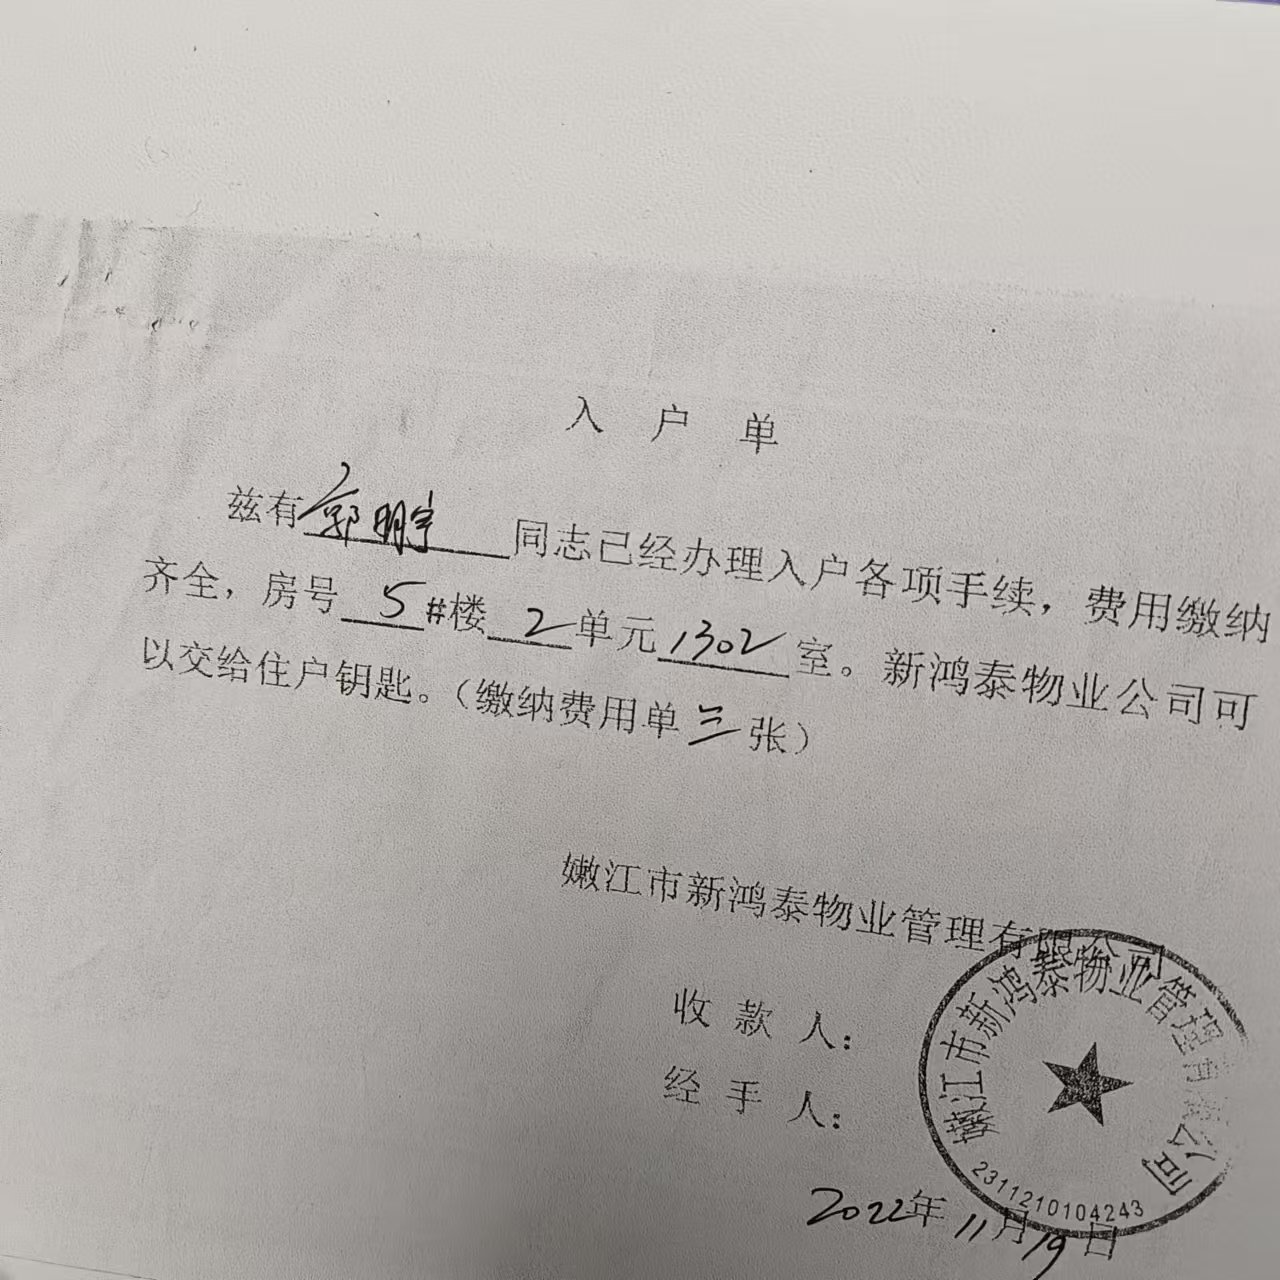 入 户 单
兹有郭明宇同志已经办理入户各项手续，费用缴纳
齐全，房号 5 #楼 2 单元 1302 室。新鸿泰物业公司可
以交给住户钥匙。（缴纳费用单三张）
嫩江市新鸿泰物业管理有限公司
收 款 人：
经 手 人：
嫩江市新鸿泰物业管理有限公司
2311210104243
2022年11月19日